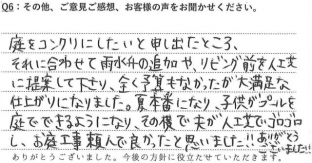 Q6：その他、ご意見ご感想、お客様の声をお聞かせください。
庭をコンクリにしたいと申し出たところ、
それに合わせて雨水升の追加や、リビング前を人工芝
に提案して下さり、全く予算もなかったが大満足な
仕上がりになりました。夏本番になり、子供がプールを
庭でできるようになり、その横で夫が人工芝でゴロゴロ
し、お庭工事頼んで良かったと思いました!!ありがとう
ございました!!
ありがとうございました。今後の方針に役立たせていただきます。